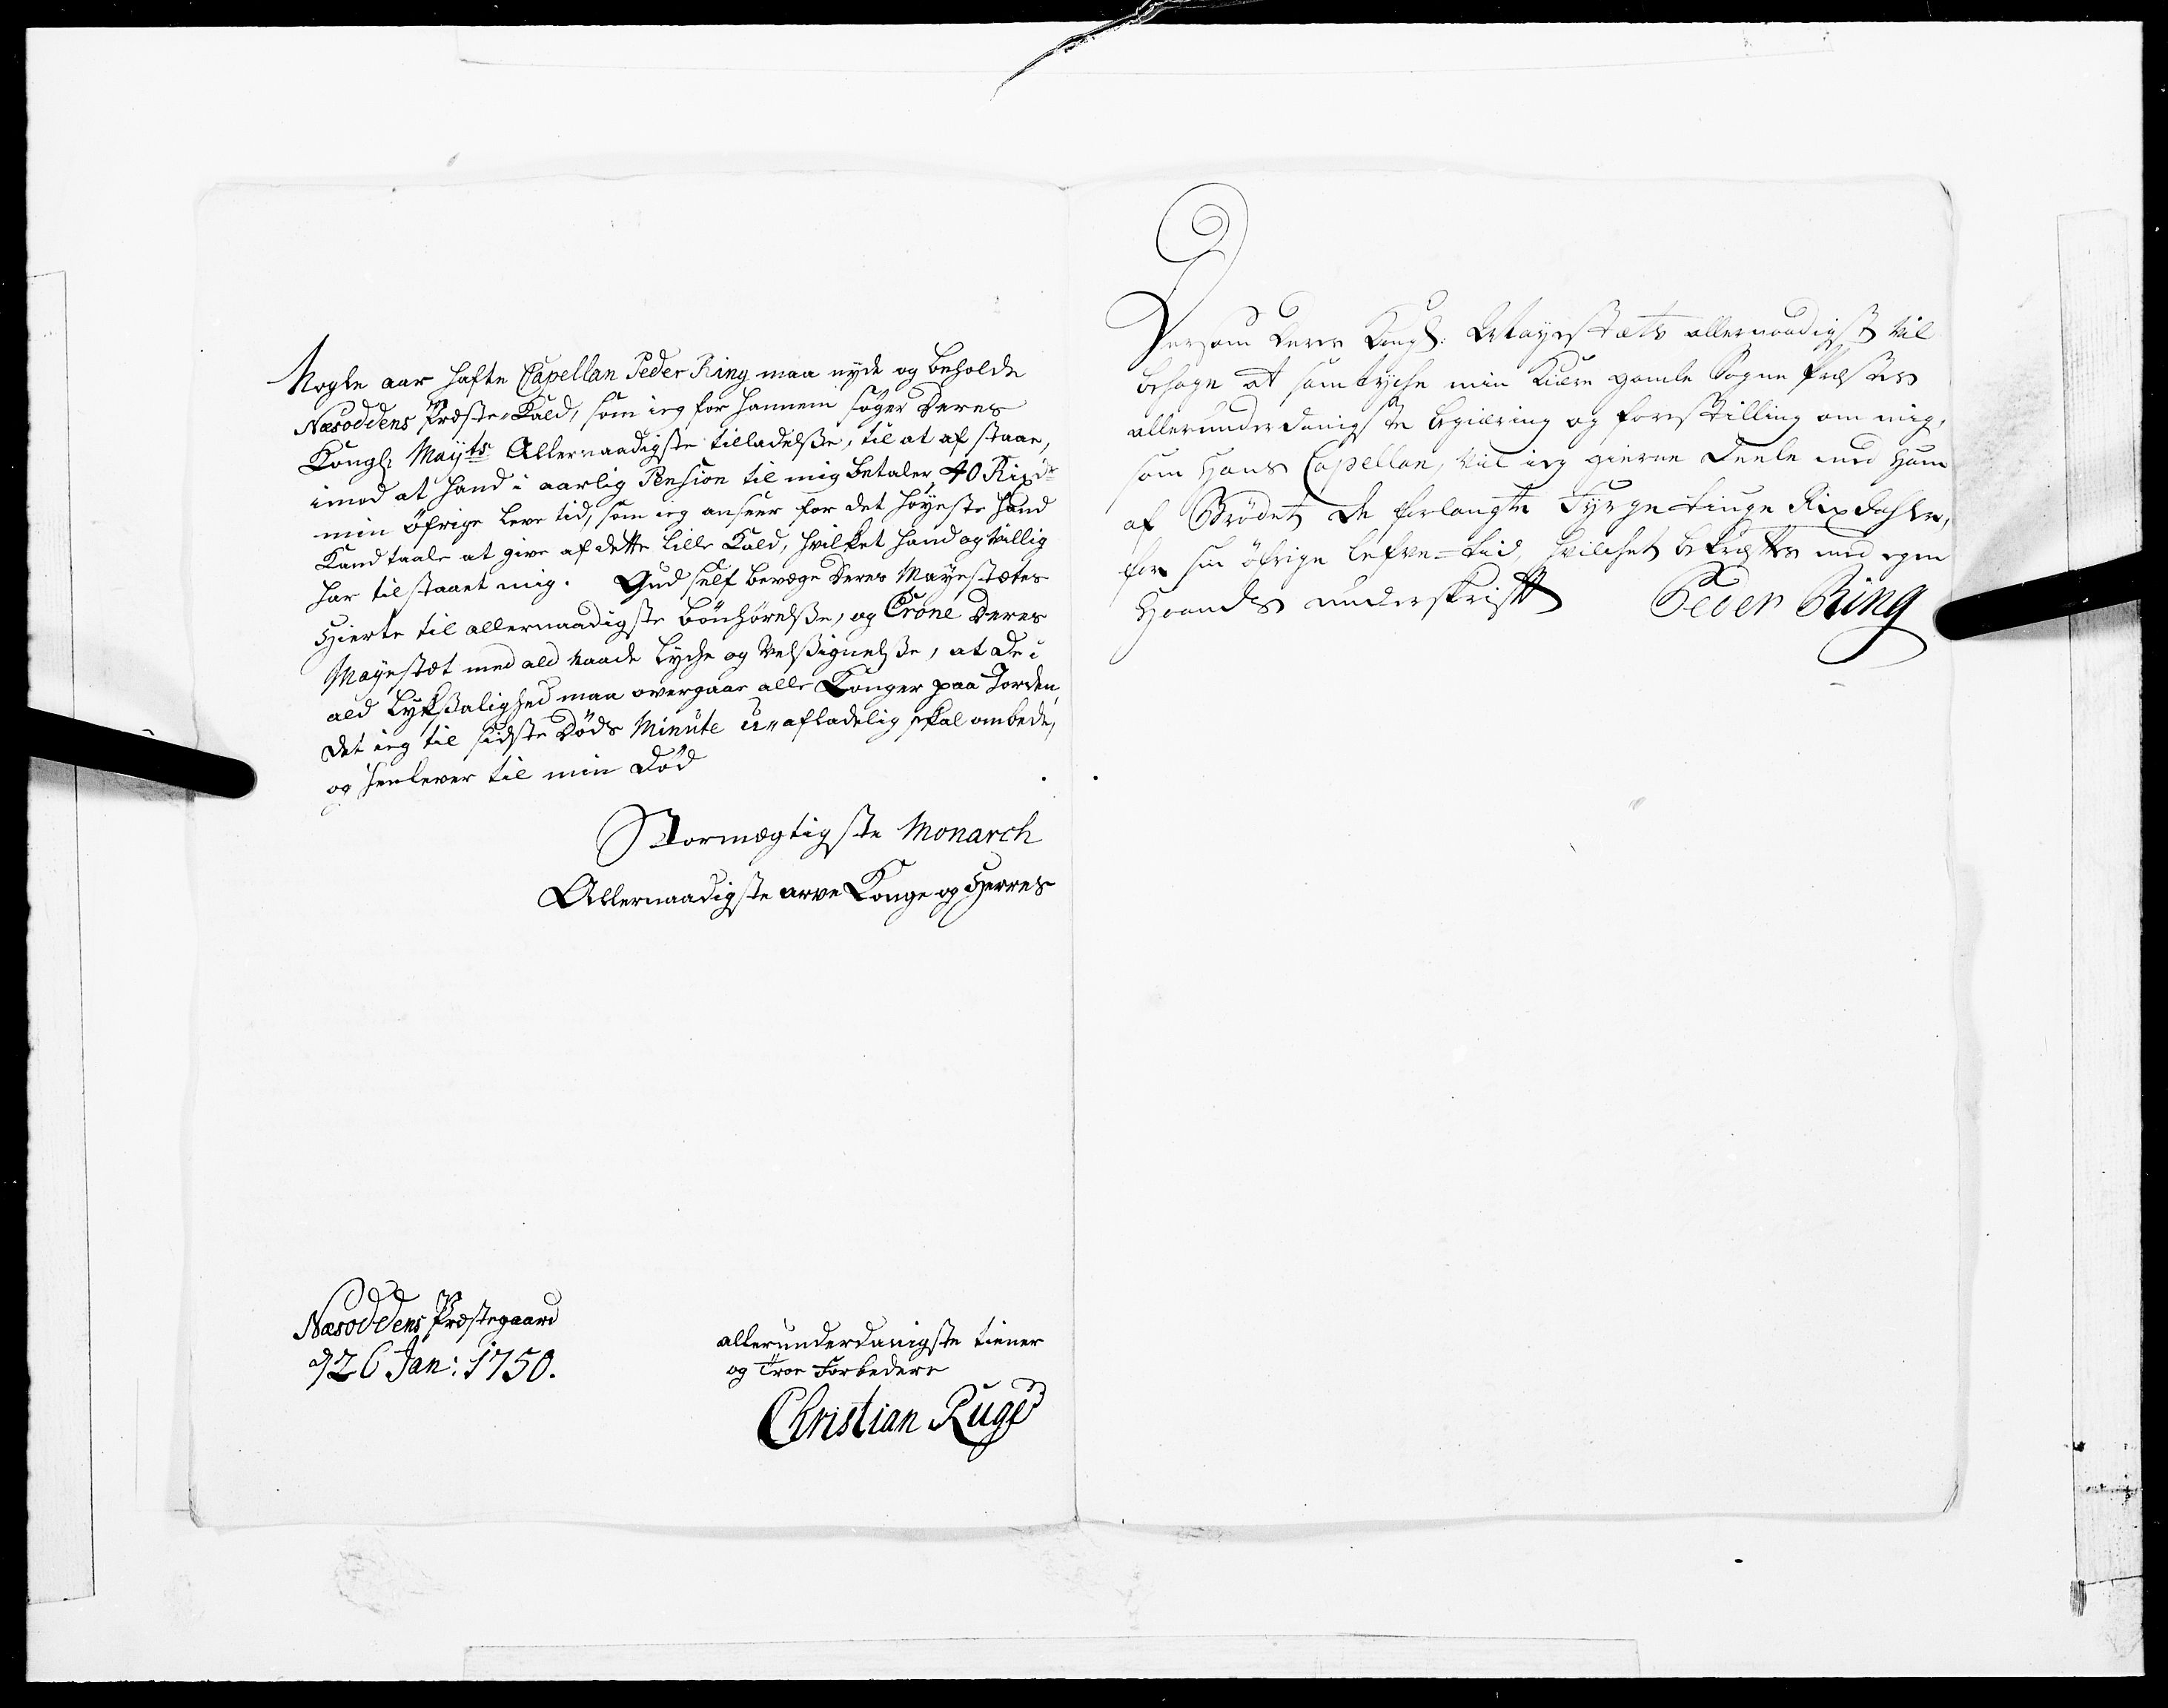 Nogle aar hafte Capellan Peder Ring maa nyde og beholde
Næsoddens Præste-Kald, som ieg for hannem søger Deres
Kongl: Mayts Allernaadigste tilladelsse, til at afstaae,
imod at hand i aarlig Pension til mig betaler 40 Rixdr
min öfrige leve tid, som ieg anseer for det høyeste hand
Kand taale at give af dette lille Kald, hvilket hand og villig
har tilstaaet mig. Gud self bevæge Deres Mayestætes
Hierte til allernaadigste bönhörelsse, og Crone Deres
Mayestæt med ald naade lyche og velssignelsse, at De i
ald lykssalighed maa overgaae alle Konger paa Jorden,
det ieg til sidste Döds Minute u-afladelig skal ombede,
og henlever til min Död
Stormægtigste Monarch
Allernaadigste arve Konge og Herres
Næsoddens Præstegaard
d 26 Jan: 1750.
allerunderdanigste tiener
og troe Forbedere
Christian Ruge
Dersom Deres Kongl: Mayestæts allernaadigst vil
behage at samtyche min Kiære gamle Sogne Præstes
allerunderdanigste begiæring og forestilling om mig,
som Hans Capellan, vil ieg gierne deele med Ham
af Brødet de forlangte Fyrgetiuge Rixdahler,
for sin öfrige lefve-tid, hvilchet bekræftes med egen
Haands underskrift
Peder Ring